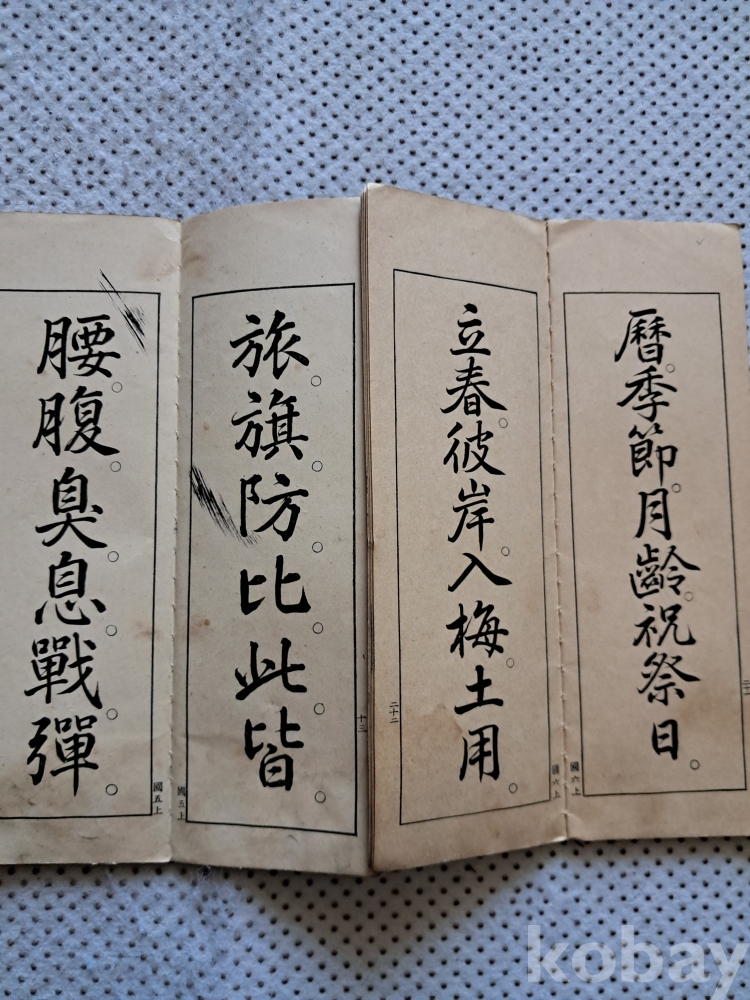 暦。季節。月齢。祝祭日。
二十一
國六上
立春。彼岸。入梅。土用。
國六上
二十二
旅。旗。防。比。此。皆。
十三
國五上
腰。腹。臭。息。戰。彈。
國五上
kobay